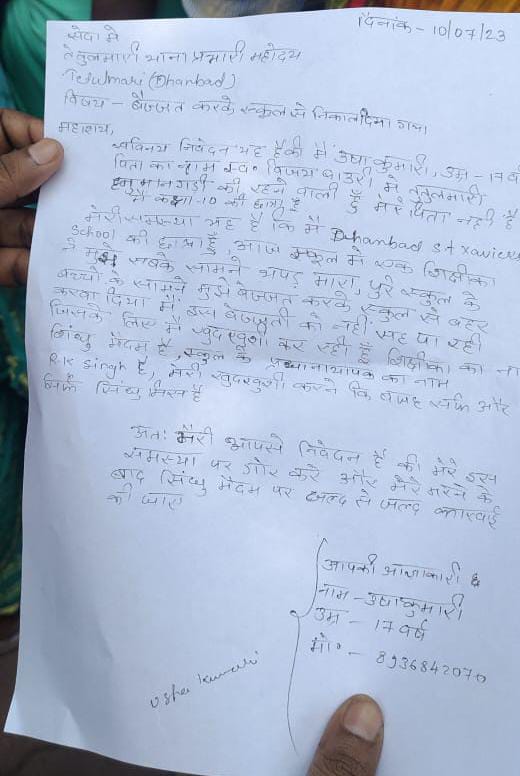 दिनांक - 10/07/23
सेवा मे
तेतुलमारी थाना प्रभारी महोदय
Tetulmari (Dhanbad)
विषय - बेज्जत करके स्कूल से निकाल दिया गया
महाशय,
सविनय निवेदन यह है की मैं उषा कुमारी, उम्र - 17 व
पिता का नाम स्व० विजय बाउरी, मे तेतुलमारी
हनुमानगढ़ी की रहने वाली हूँ मेरे पिता नही है
मै कक्षा -10 की छात्रा हूँ
मेरी समस्या यह है कि मै Dhanbad st xaviers
School की छात्रा हूँ, आज स्कूल मे एक शिक्षीका
ने मुझे सबके सामने थपड़ मारा, पुरे स्कूल के
बच्चो के सामने मुझे बेज्जत करके स्कूल से बहर
करवा दिया मैं इस बेज्जती को नही सह पा रही
जिसके लिए मै खुदखुशी कर रही हूँ शिक्षीका का ना
सिंधु मैदम है, स्कूल के प्रधानाधापक का नाम
R.K singh है, मेरी खुदखुशी करने कि वजह सर्फ और
सिर्फ सिंधु मिस है
अतः मेरी आपसे निवेदन है की मेरे इस
समस्या पर गोर करे और मेरे मरने के
बाद सिंधु मेदम पर जल्द से जल्द कारवाई
की जाए
आपकी आज्ञाकारी
नाम - उषा कुमारी
उम्र - 17 वर्ष
मो० - 8936842070
Usha kumari